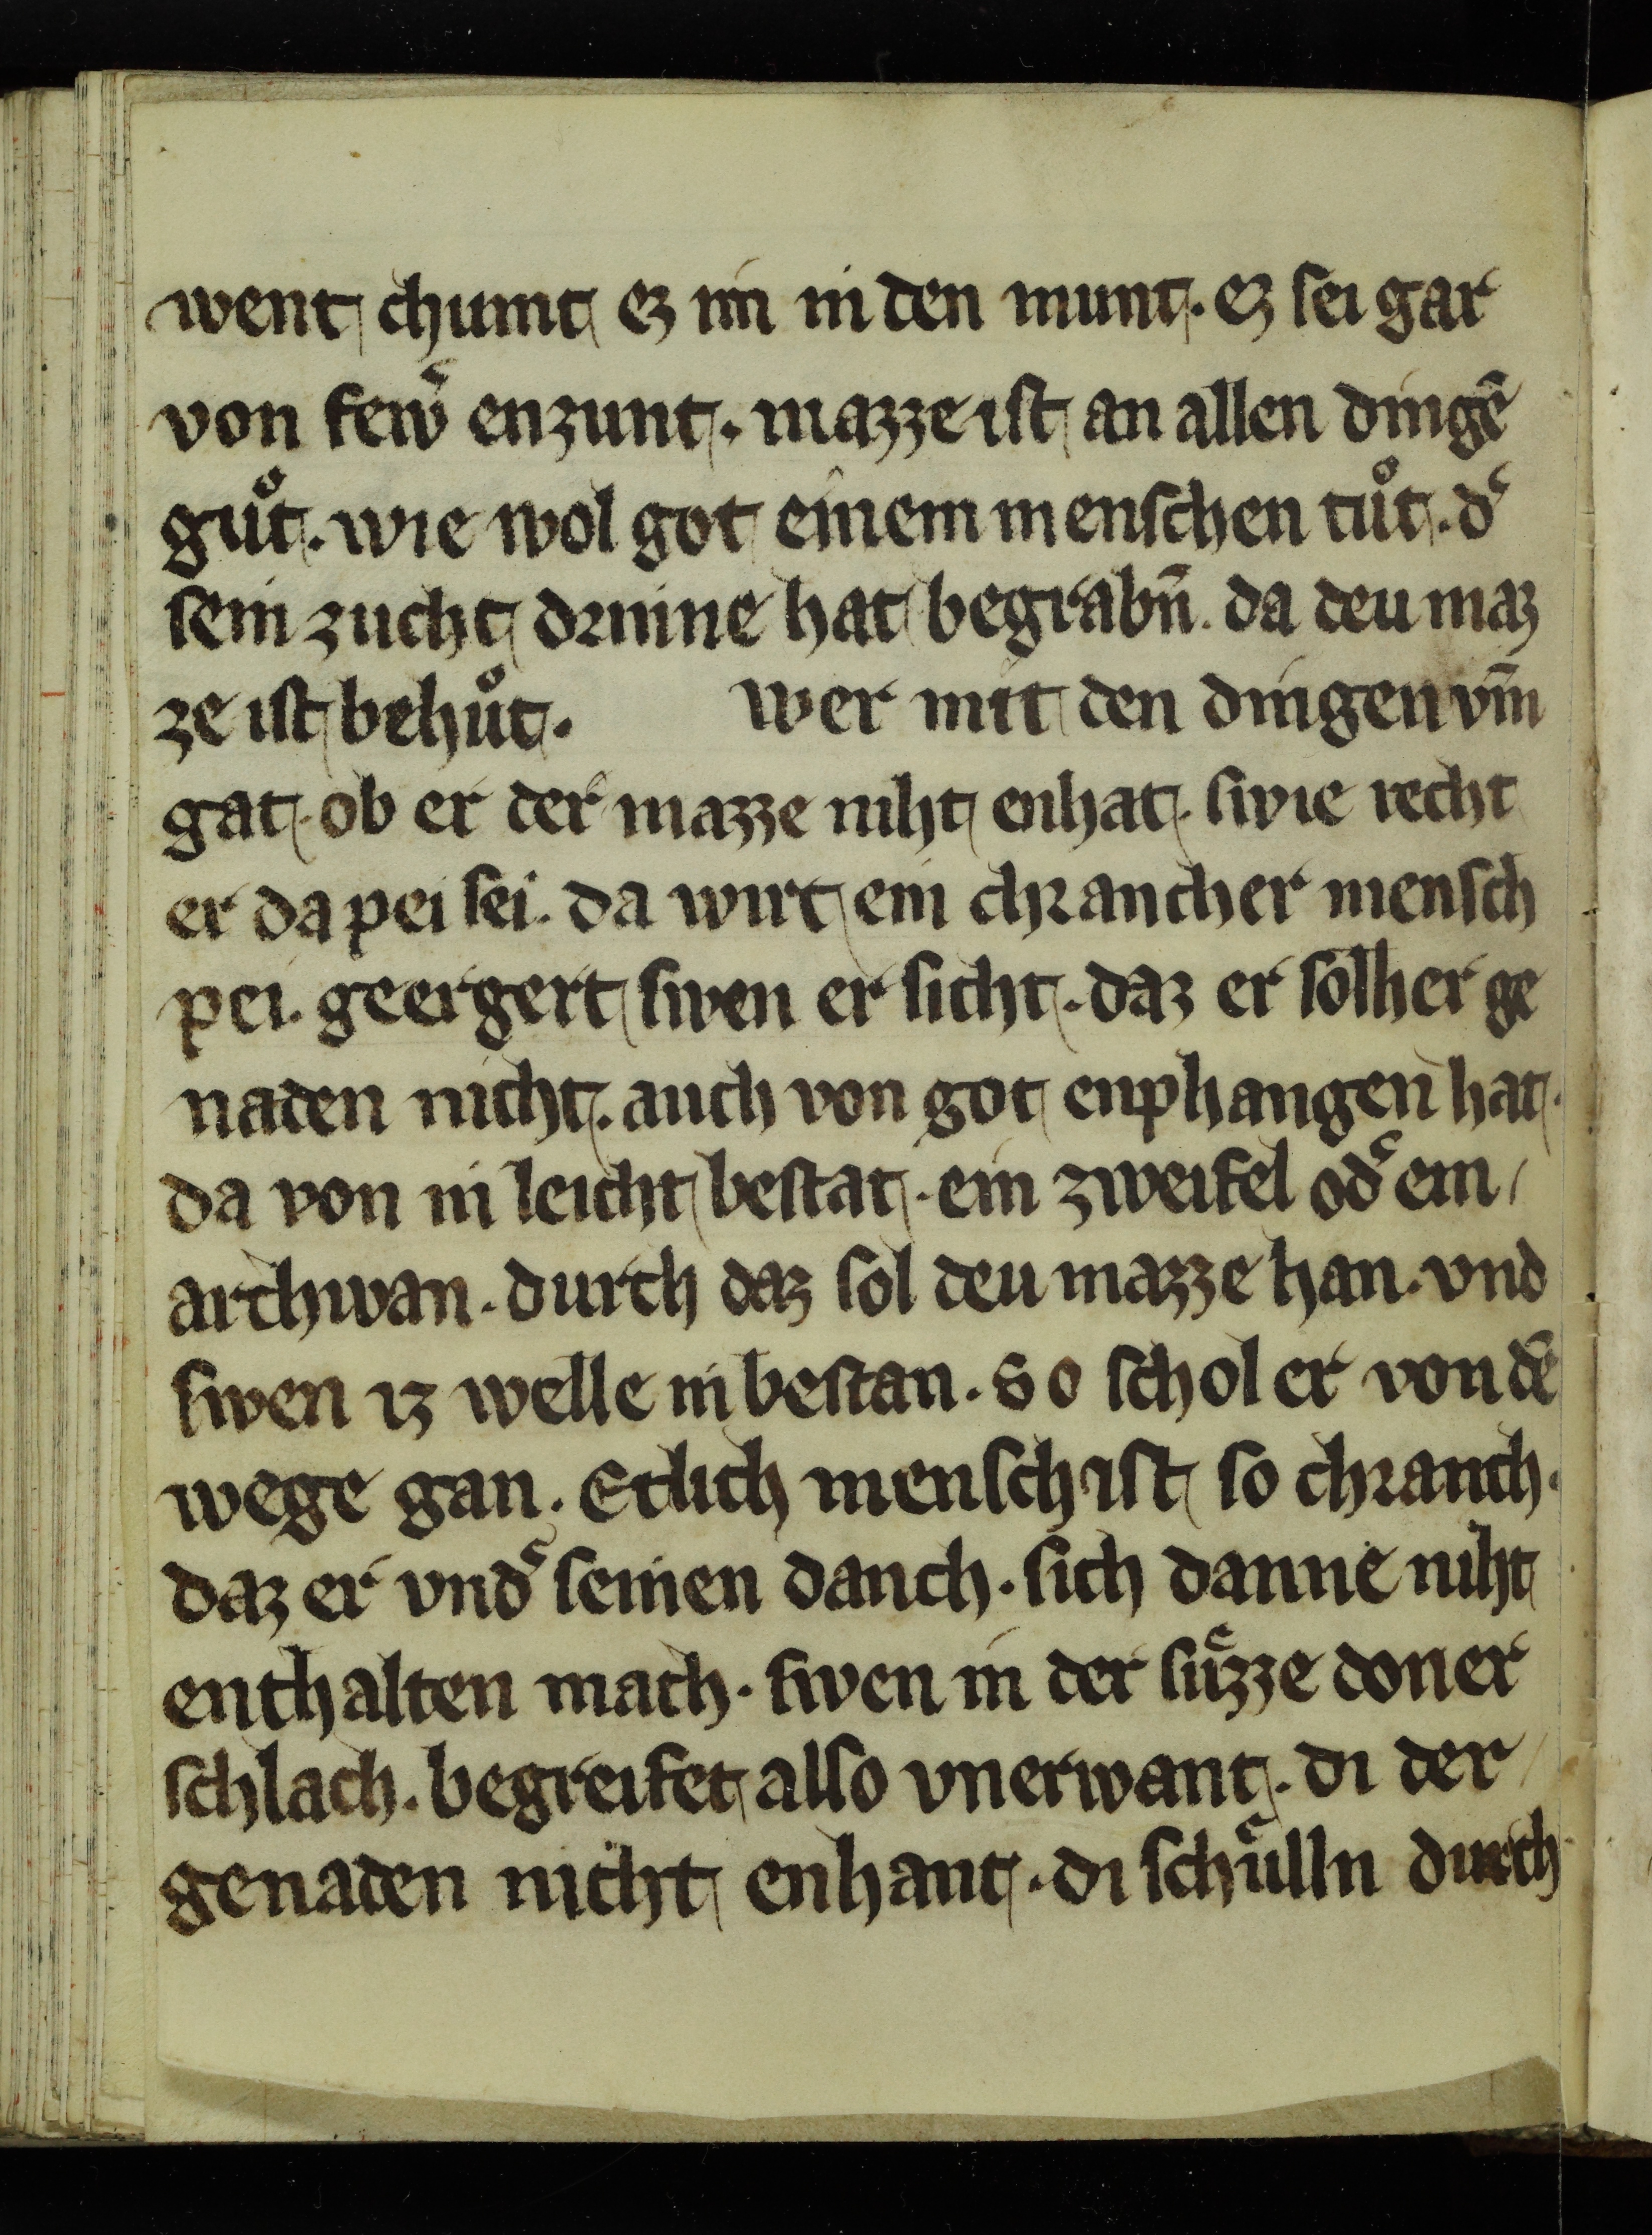 went chumt ez im in den munt. ez sei gar
von fewͤ enzunt. mazze ist an allen dingē
guͦt. wie wol got einem menschen tuͦt. dͤ
sein zucht drinne hat begrabn̄. da deu maz
ze ist behuͦt. wer mit den dingen vm̄
gat. ob er der mazze niht enhat. swie recht
er da pei sei. da wirt ein chrancher mensch
pei. geergert swen er sicht. daz er solher ge
naden nicht. auch von got enphangen hat.
da von in leicht bestat. ein zweifel odͤ ein
archwan. durch daz sol deu mazze han. vnd
swen iz welle in bestan. so schol er von dē
wege gan. Etlich mensch ist so chranch.
daz er vndͤ seinen danch. sich danne niht
enthalten mach. swen in der suͤzze doner
schlach. begreifet also vnerwant. di der
genaden nicht enhant. di schuͤlln durch